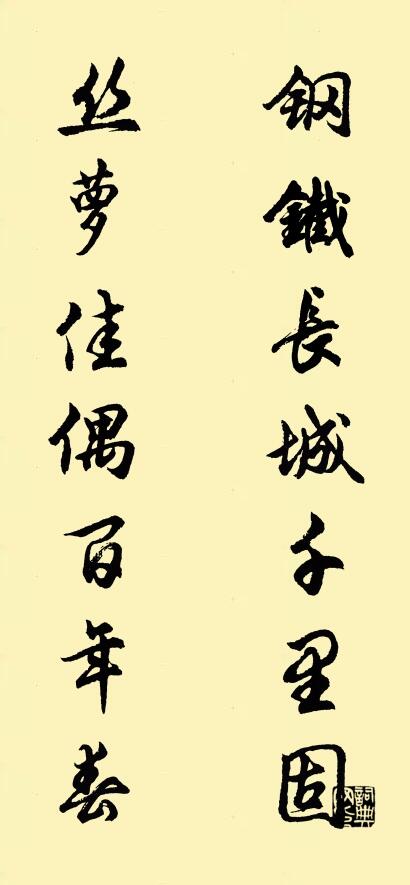 钢鐵長城千里固
丝萝佳偶百年春
詞典网